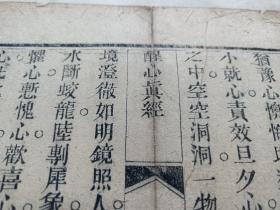 猶豫心懶惰
小就心責效旦夕心
之中空空洞洞一物
醒心眞經
境澄徹如明鏡照人。
水斷蛟龍陸剸犀象。
懼心慚愧心歡喜心